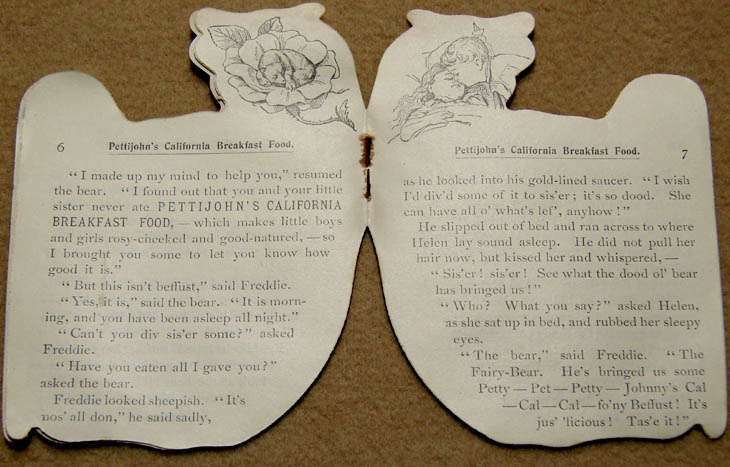 6 Pettijohn's California Breakfast Food.
"I made up my mind to help you," resumed
the bear. "I found out that you and your little
sister never ate PETTIJOHN'S CALIFORNIA
BREAKFAST FOOD,—which makes little boys
and girls rosy-cheeked and good-natured,—so
I brought you some to let you know how
good it is."
"But this isn't beffust," said Freddie.
"Yes, it is," said the bear. "It is morn-
ing, and you have been asleep all night."
"Can't you div sis'er some?" asked
Freddie.
"Have you eaten all I gave you?"
asked the bear.
Freddie looked sheepish. "It's
nos' all don," he said sadly,
Pettijohn's California Breakfast Food. 7
as he looked into his gold-lined saucer. "I wish
I'd div'd some of it to sis'er; it's so dood. She
can have all o' what's lef', anyhow!"
He slipped out of bed and ran across to where
Helen lay sound asleep. He did not pull her
hair now, but kissed her and whispered,—
"Sis'er! sis'er! See what the dood ol' bear
has bringed us!"
"Who? What you say?" asked Helen,
as she sat up in bed, and rubbed her sleepy
eyes.
"The bear," said Freddie. "The
Fairy-Bear. He's bringed us some
Petty—Pet—Petty—Johnny's Cal
—Cal—Cal—fo'ny Beffust! It's
jus' 'licious! Tas'e it!"